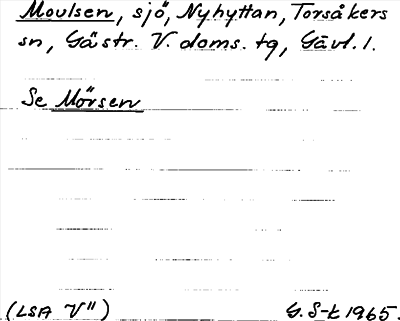 Moulsen, sjö, Nyhyttan, Torsåkers
sn, Gästr. V. doms. tg, Gävl. l.
Se Mörsen
(LSA V")
G. S-k 1965.